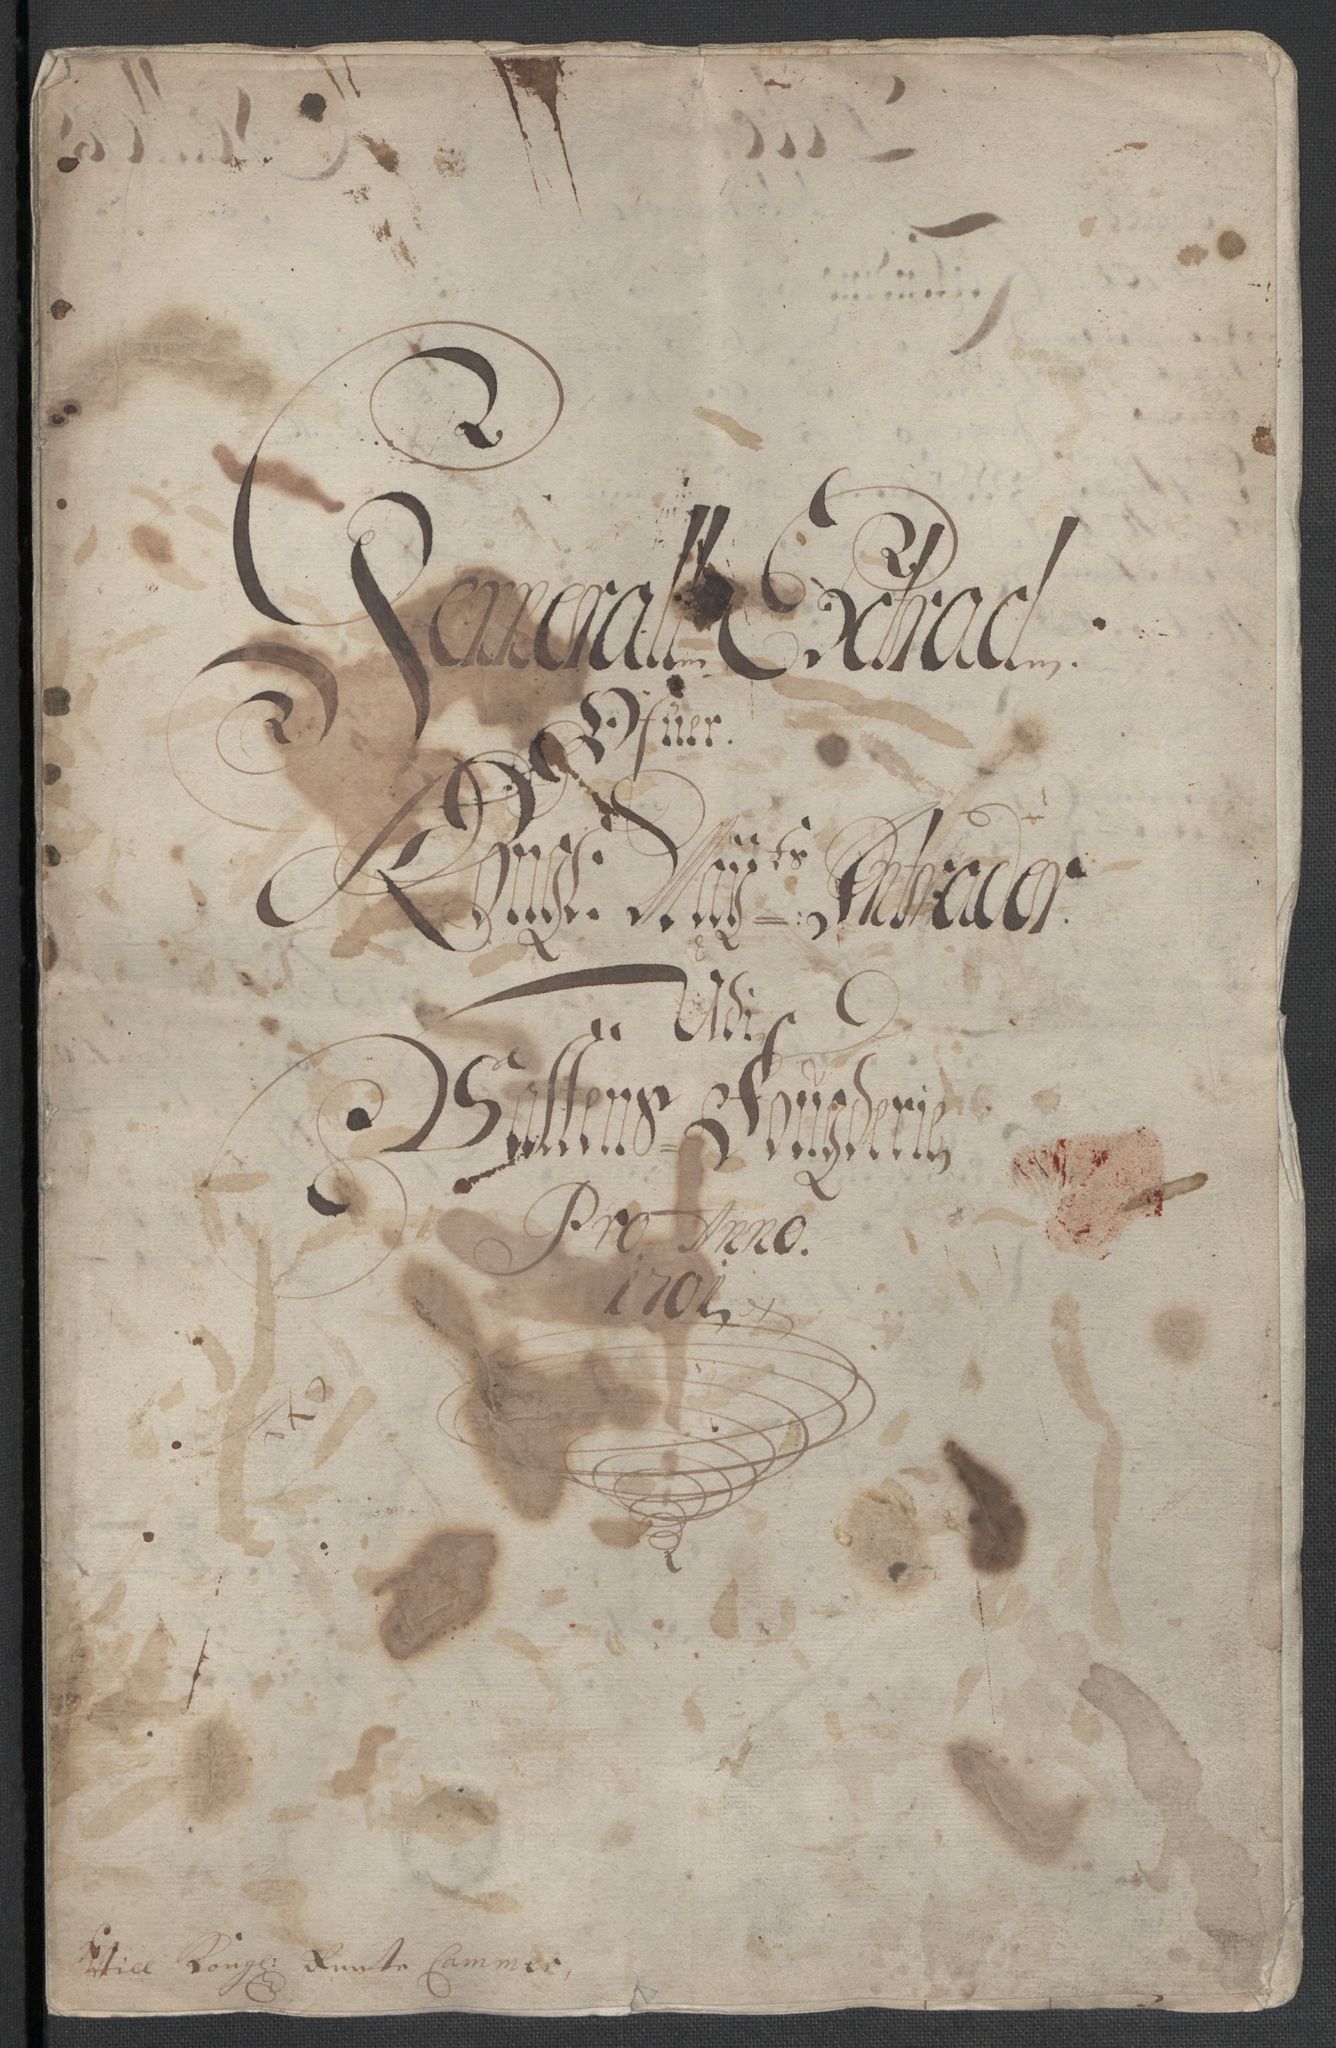 Generall Extract
Ofuer
Kongl: Maÿ:ts Intrader
Udi
Saltens Fougderie
Pro Anno.
1701
Till Kongl: Rente Cammer,